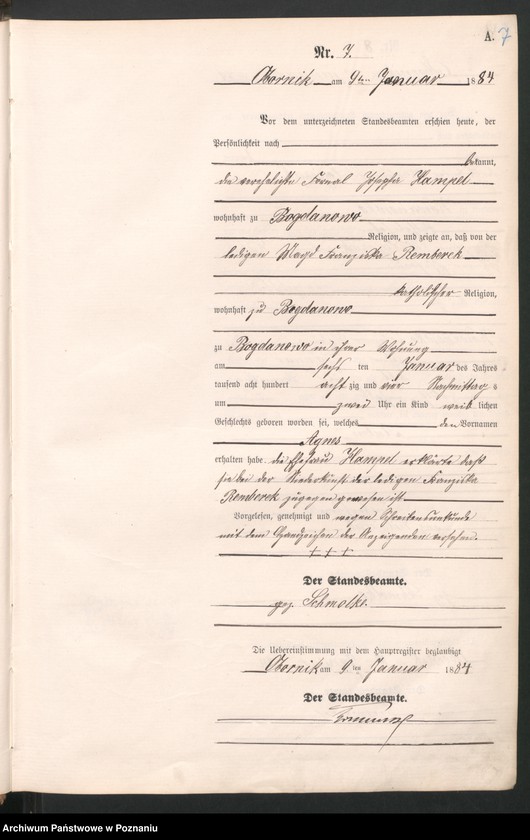 A. 7
Nr. 7.
Obornik am 9ten Januar 1884
Vor dem unterzeichneten Standesbeamten erschien heute, der
Persönlichkeit nach
bekannt,
die verehelichte Josepha Hampel
wohnhaft zu Bogdanowo
Religion, und zeigte an, daß von der
ledigen Magd Franziska Remberek
katholischer Religion,
wohnhaft zu Bogdanowo
zu Bogdanowo in ihrer Wohnung
am sechs ten Januar des Jahres
tausend acht hundert acht zig und vier Nachmittag s
um zwei Uhr ein Kind weib lichen
Geschlechts geboren worden sei, welches den Vornamen
Agnes
erhalten habe. die Ehefrau Hampel erklärte daß
sie bei der Niederkunft der ledigen Franziska
Remberek zugegen gewesen ist
Vorgelesen, genehmigt und wegen Schreibensunkunde
mit dem Handzeichen der Anzeigenden versehen.
+ + +
Der Standesbeamte.
gez. Schmolke.
Die Uebereinstimmung mit dem Hauptregister beglaubigt
Obornik am 9ten Januar 1884
Der Standesbeamte.
Archiwum Państwowe w Poznaniu